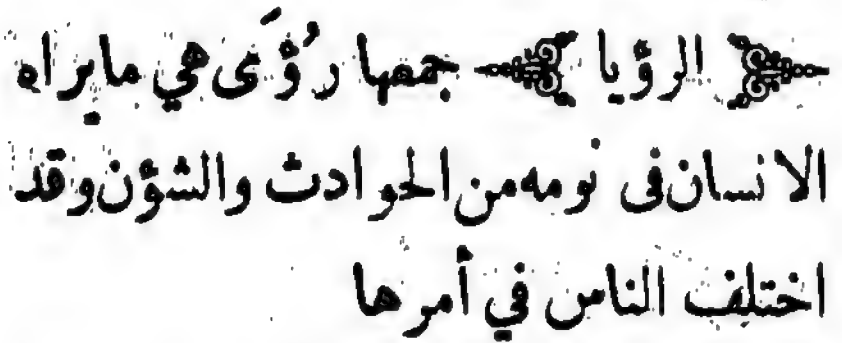 الرؤيا جمعها رُؤَى هي مايراه
الانسان فى نومه من الحوادث والشؤن وقد
اختلف الناس في أمرها